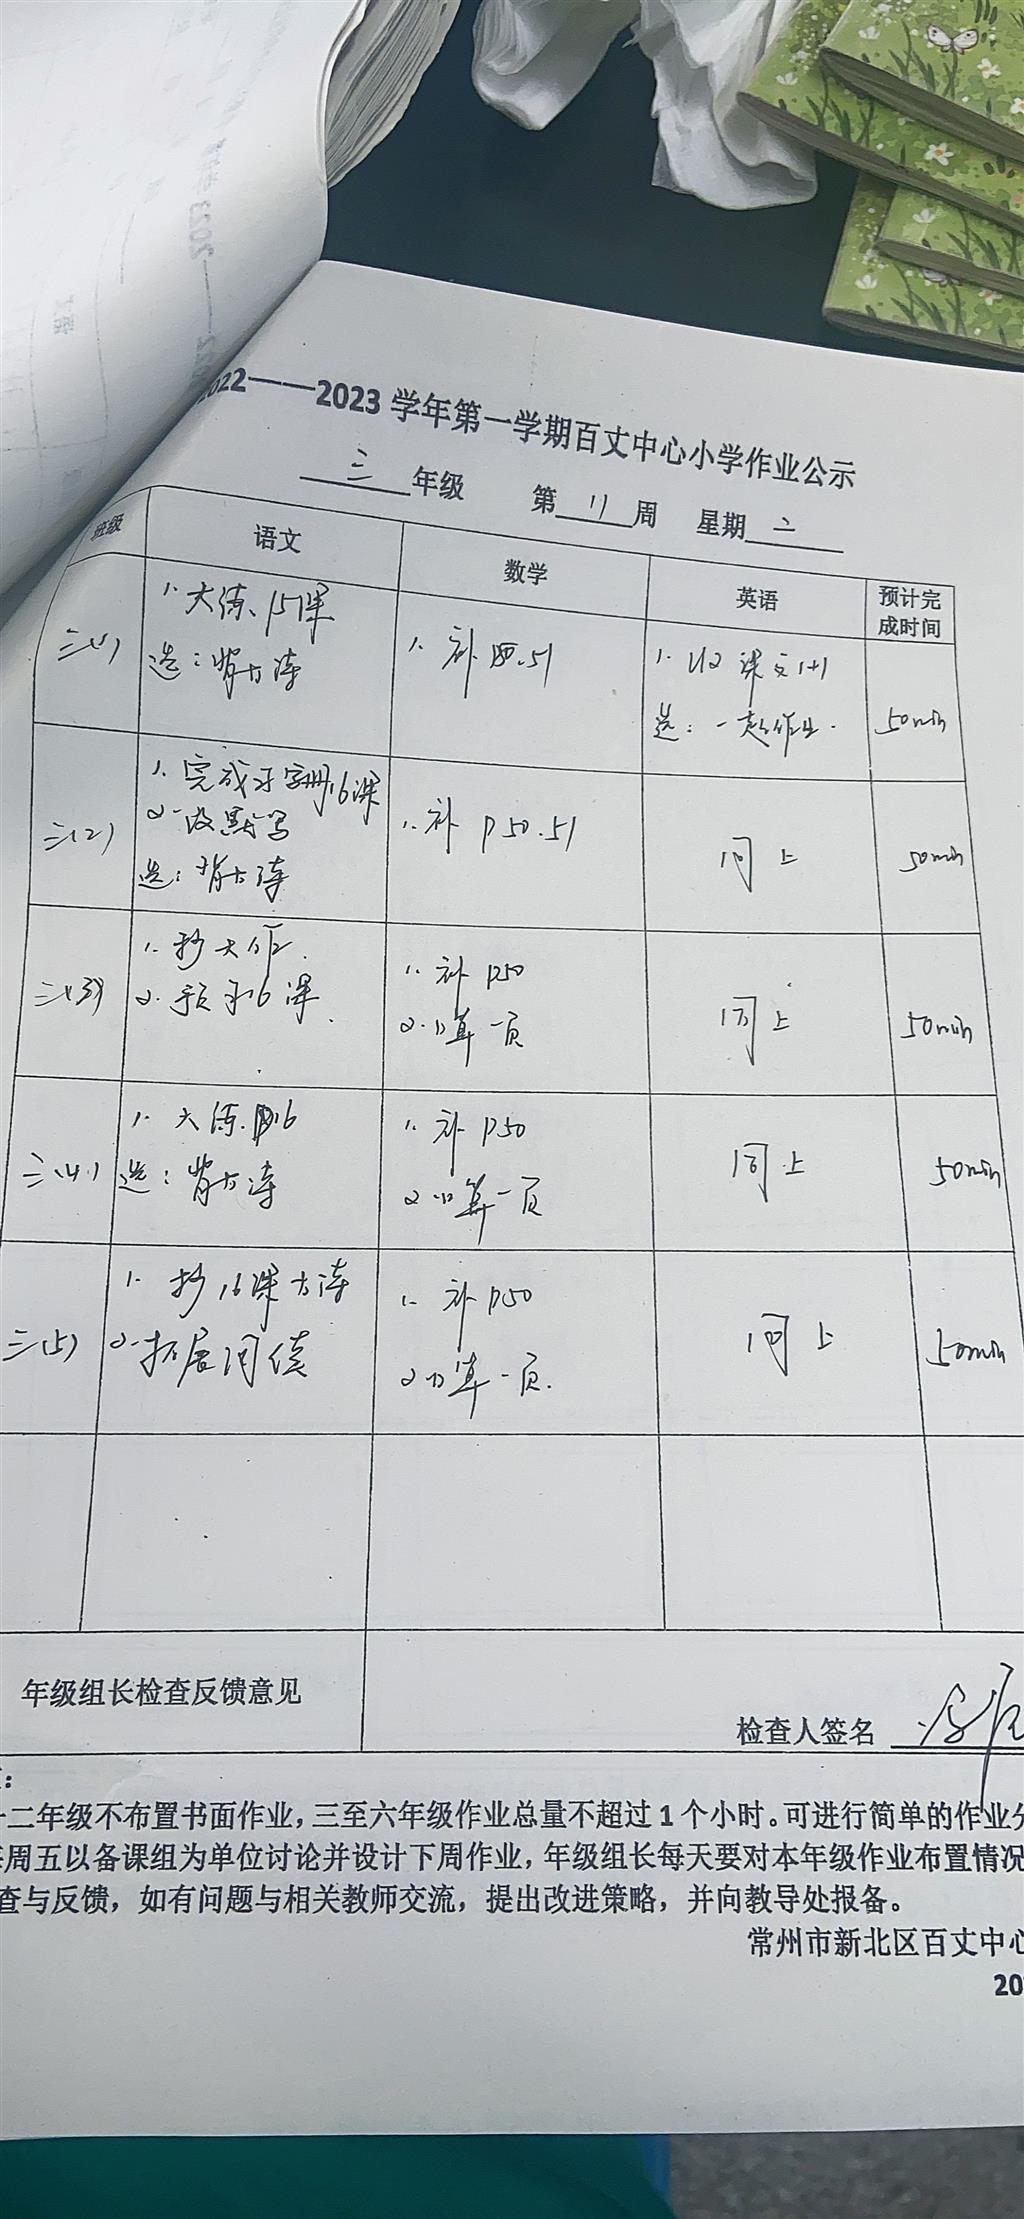 2022——2023 学年第一学期百丈中心小学作业公示
三 年级 第 11 周 星期 二
班级 语文 数学 英语 预计完成时间
三(1)
1. 大练、15课
选：背古诗
1. 补 P50.51
1. U2 课文1+1
选：一起作业.
50min
三(2)
1. 完成习字册16课
2. 改默写
选：背古诗
1. 补 P50.51
同上
50min
三(3)
1. 抄大作.
2. 预习16课.
1. 补 P50
2. 口算一页
同上
50min
三(4)
1. 大练.P16
选：背古诗
1. 补 P50
2. 口算一页
同上
50min
三(5)
1. 抄16课古诗
2. 拓展阅读
1. 补 P50
2. 口算一页.
同上
50min
年级组长检查反馈意见
检查人签名
：
二年级不布置书面作业，三至六年级作业总量不超过 1 个小时。可进行简单的作业分
周五以备课组为单位讨论并设计下周作业，年级组长每天要对本年级作业布置情况
查与反馈，如有问题与相关教师交流，提出改进策略，并向教导处报备。
常州市新北区百丈中心
20